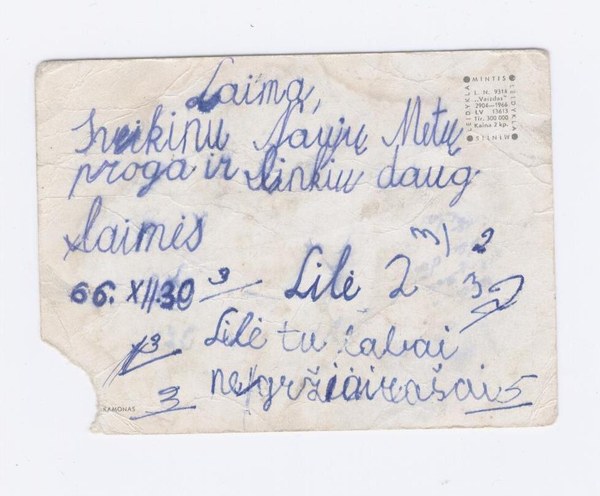 Laima,
Sveikinu Naujų Metų
proga ir linkiu daug
laimės
66. XII.30 3 Lilė 2 3 2
3
3 Lilė tu labai
3 negržiai rašai 5
MINTIES
LEIDYKLA
L. N. 9316
„Vaizdas"
2904—1966
LV 13613
Tir. 300 000
Kaina 2 kp.
LEIDYKLA
MINTIS
KAMONAS